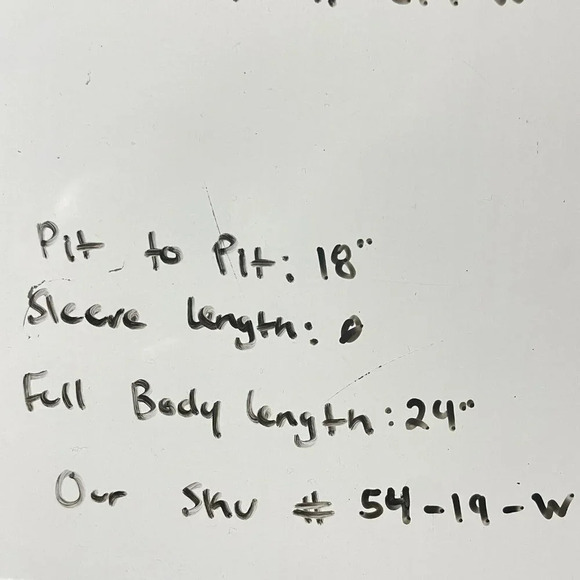 Pit to Pit: 18"
Sleeve length: 0
Full Body length: 24"
Our Sku # 54-19-W